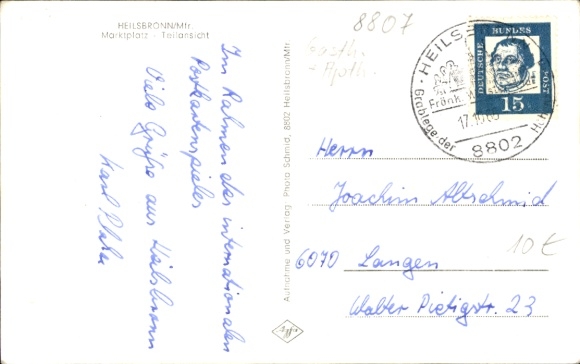 HEILSBRONN/Mfr.
Marktplatz - Teilansicht
Im Rahmen des internationalen
Postkartenspieles
Viele Grüße aus Heilsbronn
Karl
Aufnahme und Verlag Photo Schmid, 8802 Heilsbronn/Mfr.
Agfa
8807
Gasth.
+ Apoth.
HEILS
Fränk.
17.10.
Grablege der
8802
DEUTSCHE BUNDESPOST
15
Herrn
Joachim Altschmid
10 €
6070 Langen
Walter Rietigstr. 23